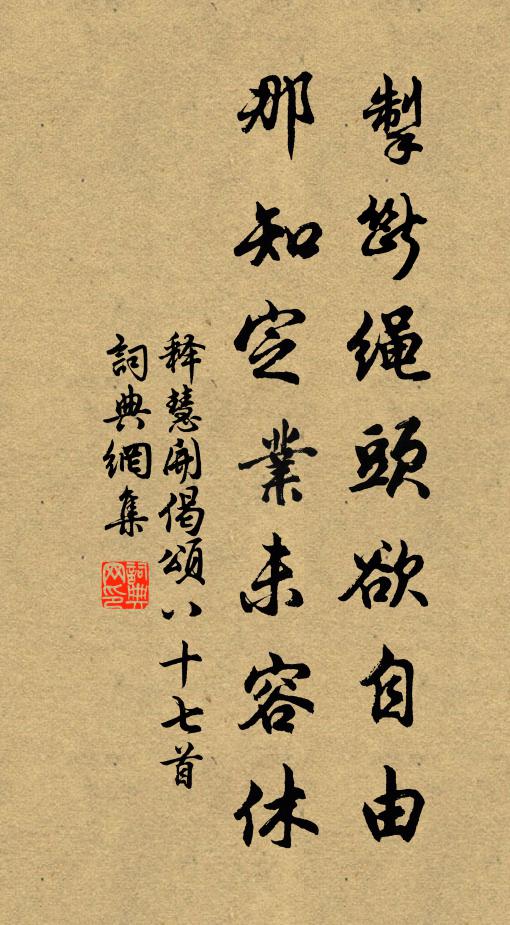 掣斷繩頭欲自由
那知定業未容休
释慧開偈頌八十七首
詞典網集
詞典网印